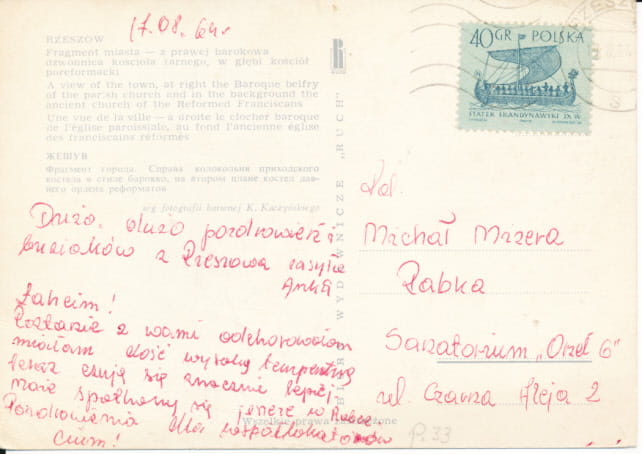 17.08.64r.
RZESZÓW
Fragment miasta — z prawej barokowa
dzwonnica kościoła farnego, w głębi kościół
poreformacki
A view of the town, at right the Baroque belfry
of the parish church and in the background the
ancient church of the Reformed Franciscans
Une vue de la ville — à droite le clocher baroque
de l'église paroissiale, au fond l'ancienne église
des franciscains réformés
ЖЕШУВ
Фрагмент города. Справа колокольня приходского
костела в стиле барокко, на втором плане костел дав-
него ордена реформатов
wg fotografii barwnej K. Kaczyńskiego
Dużo, dużo pozdrowień i
buziaków z Rzeszowa zasyła
Anka
Joheim!
z wami odchorowałam
miałam dość wysoką temperaturę
teraz czuję się znacznie lepiej.
może spotkamy się jeszcze w Rabce
Pozdrowienia dla współlokatorów
Cium!
BIURO WYDAWNICZE „RUCH"
Wszelkie prawa zastrzeżone
40 GR POLSKA
STATEK SKANDYNAWSKI IX W.
RZESZÓW
Kol.
Michał Mazera
Rabka
Sanatorium „Orzeł 6"
ul. Czarna Aleja 2
p. 33